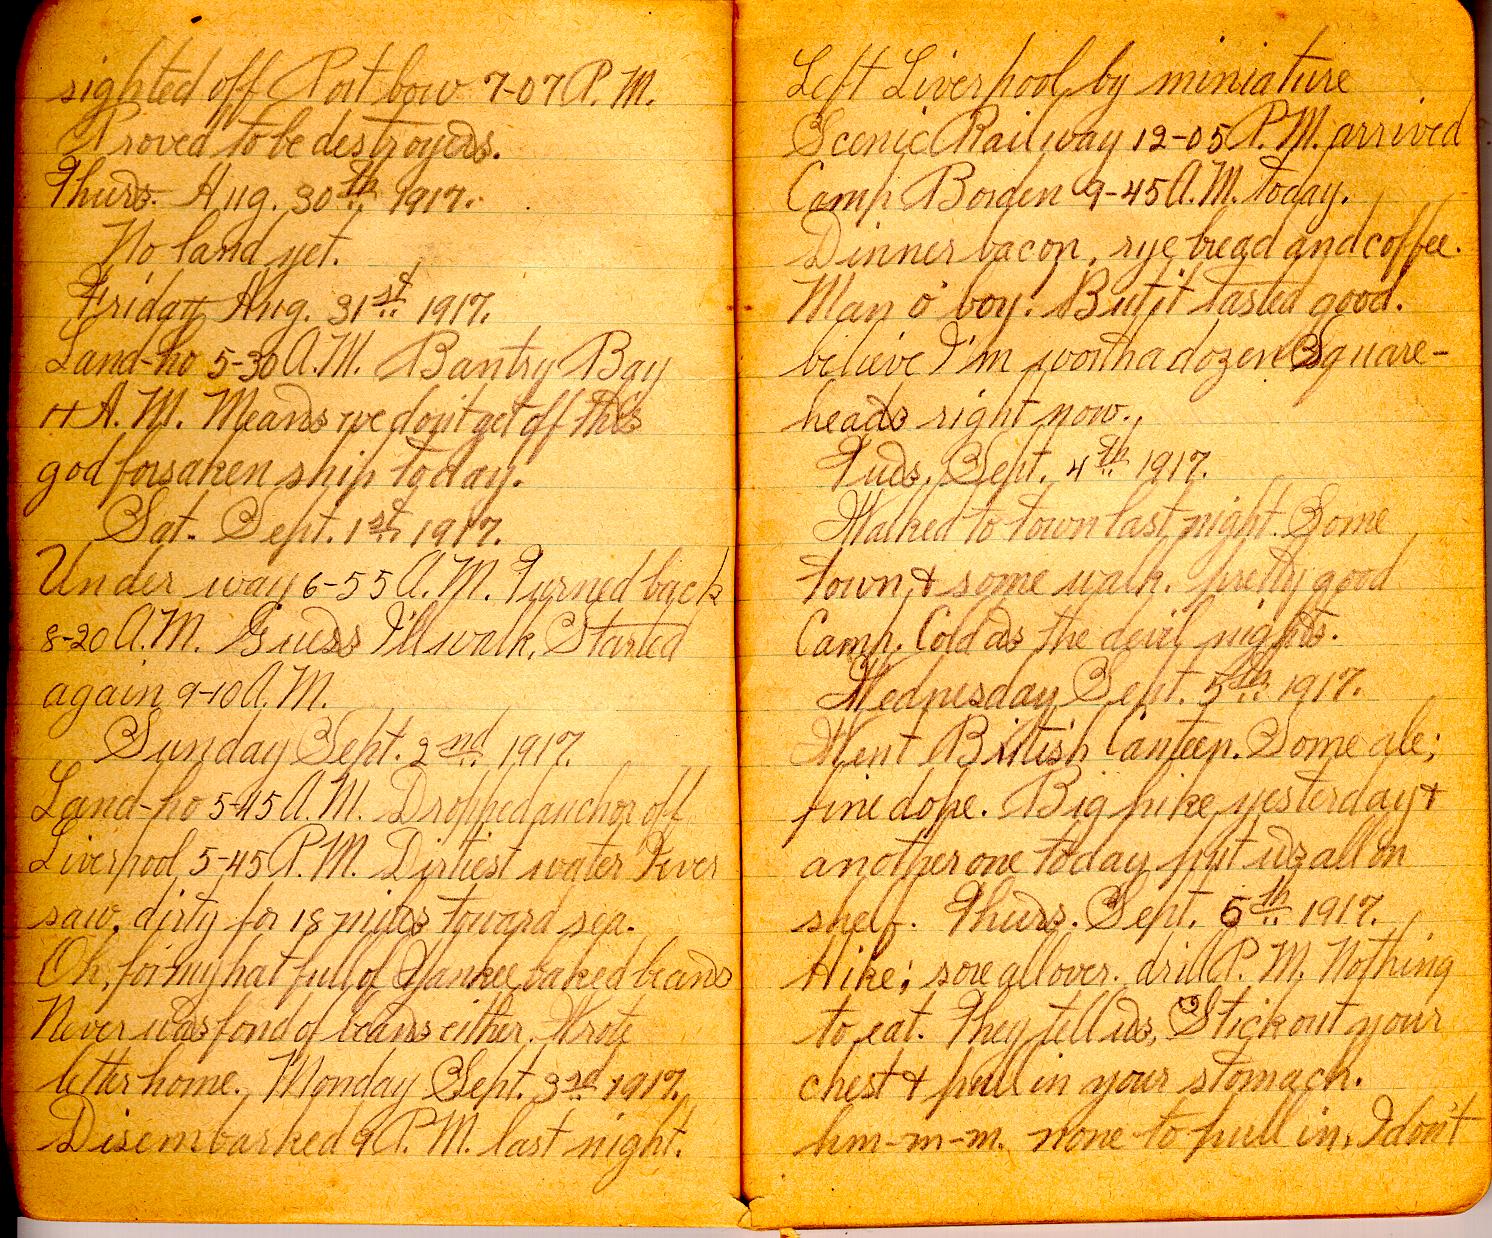 sighted off Port bow 7-07 P.M.
Proved to be destroyers.
Thurs. Aug. 30th 1917.
No land yet.
Friday Aug. 31st 1917.
Land-ho 5-30 A.M. Bantry Bay
11 A.M. Means we don't get off this
god forsaken ship today.
Sat. Sept. 1st 1917.
Under way 6-55 A.M. Turned back
8-20 A.M. Guess I'll walk. Started
again 9-10 A.M.
Sunday Sept. 2nd 1917.
Land-ho 5-45 A.M. Dropped anchor off
Liverpool 5-45 P.M. Dirtiest water I ever
saw, dirty for 18 miles toward sea.
Oh, for my hat full of Yankee baked beans
Never was fond of beans either. Wrote
letter home. Monday Sept. 3rd 1917.
Disembarked 9 P.M. last night.
Left Liverpool by miniature
Scenic Railway 12-05 P.M. arrived
Camp Borden 9-45 A.M. today.
Dinner bacon, rye bread and coffee.
Man o' boy. But it tasted good.
believe I'm worth a dozen Square-
heads right now.
Tues. Sept. 4th 1917.
Walked to town last night. Some
town & some walk. pretty good
Camp. Cold as the devil nights.
Wednesday Sept. 5th 1917.
Went British Canteen. Some ale;
fine dope. Big hike yesterday &
another one today put us all on
shelf. Thurs. Sept. 6th 1917.
Hike; sore all over. drill P.M. Nothing
to eat. They tell us, Stick out your
chest & pull in your stomach.
hm-m-m. none to pull in. I don't